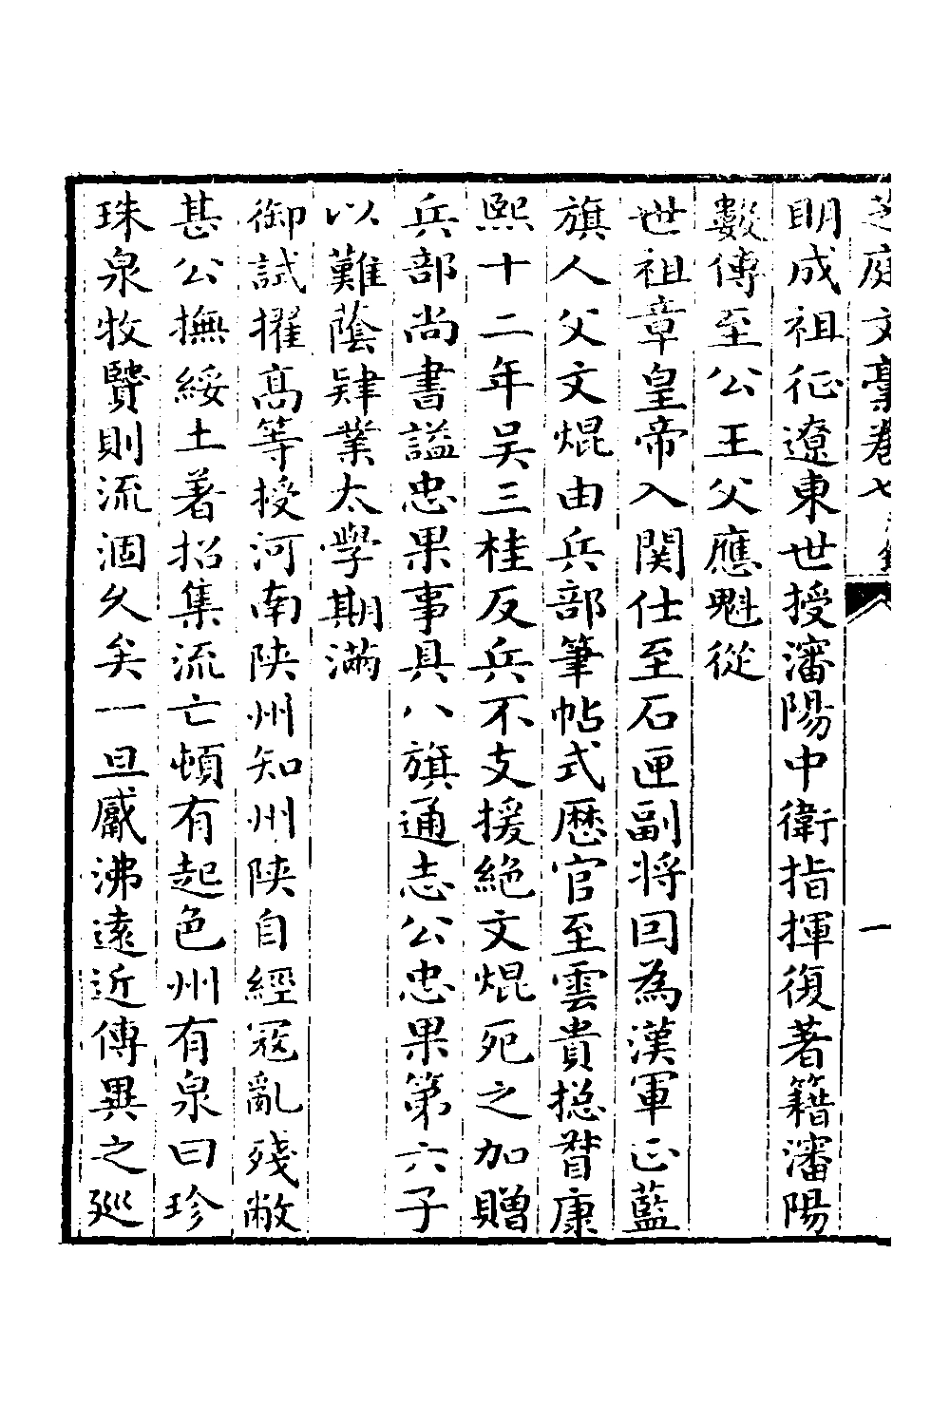 芝庭文稾卷七
一
明成祖征遼東世授瀋陽中衛指揮復著籍瀋陽
數傳至公王父應魁從
世祖章皇帝入関仕至石匣副将回為漢軍正藍
旗人父文焜由兵部筆帖式歷官至雲貴捴督康
熙十二年吴三桂反兵不支援絶文焜死之加贈
兵部尚書謚忠果事具八旗通志公忠果第六子
以難蔭肄業太學期滿
御試擢髙等授河南陜州知州陜自經冦亂殘敝
甚公撫綏土著招集流亡頓有起色州有泉曰珍
珠泉牧賢則流涸久矣一旦觱沸遠近傳異之廵